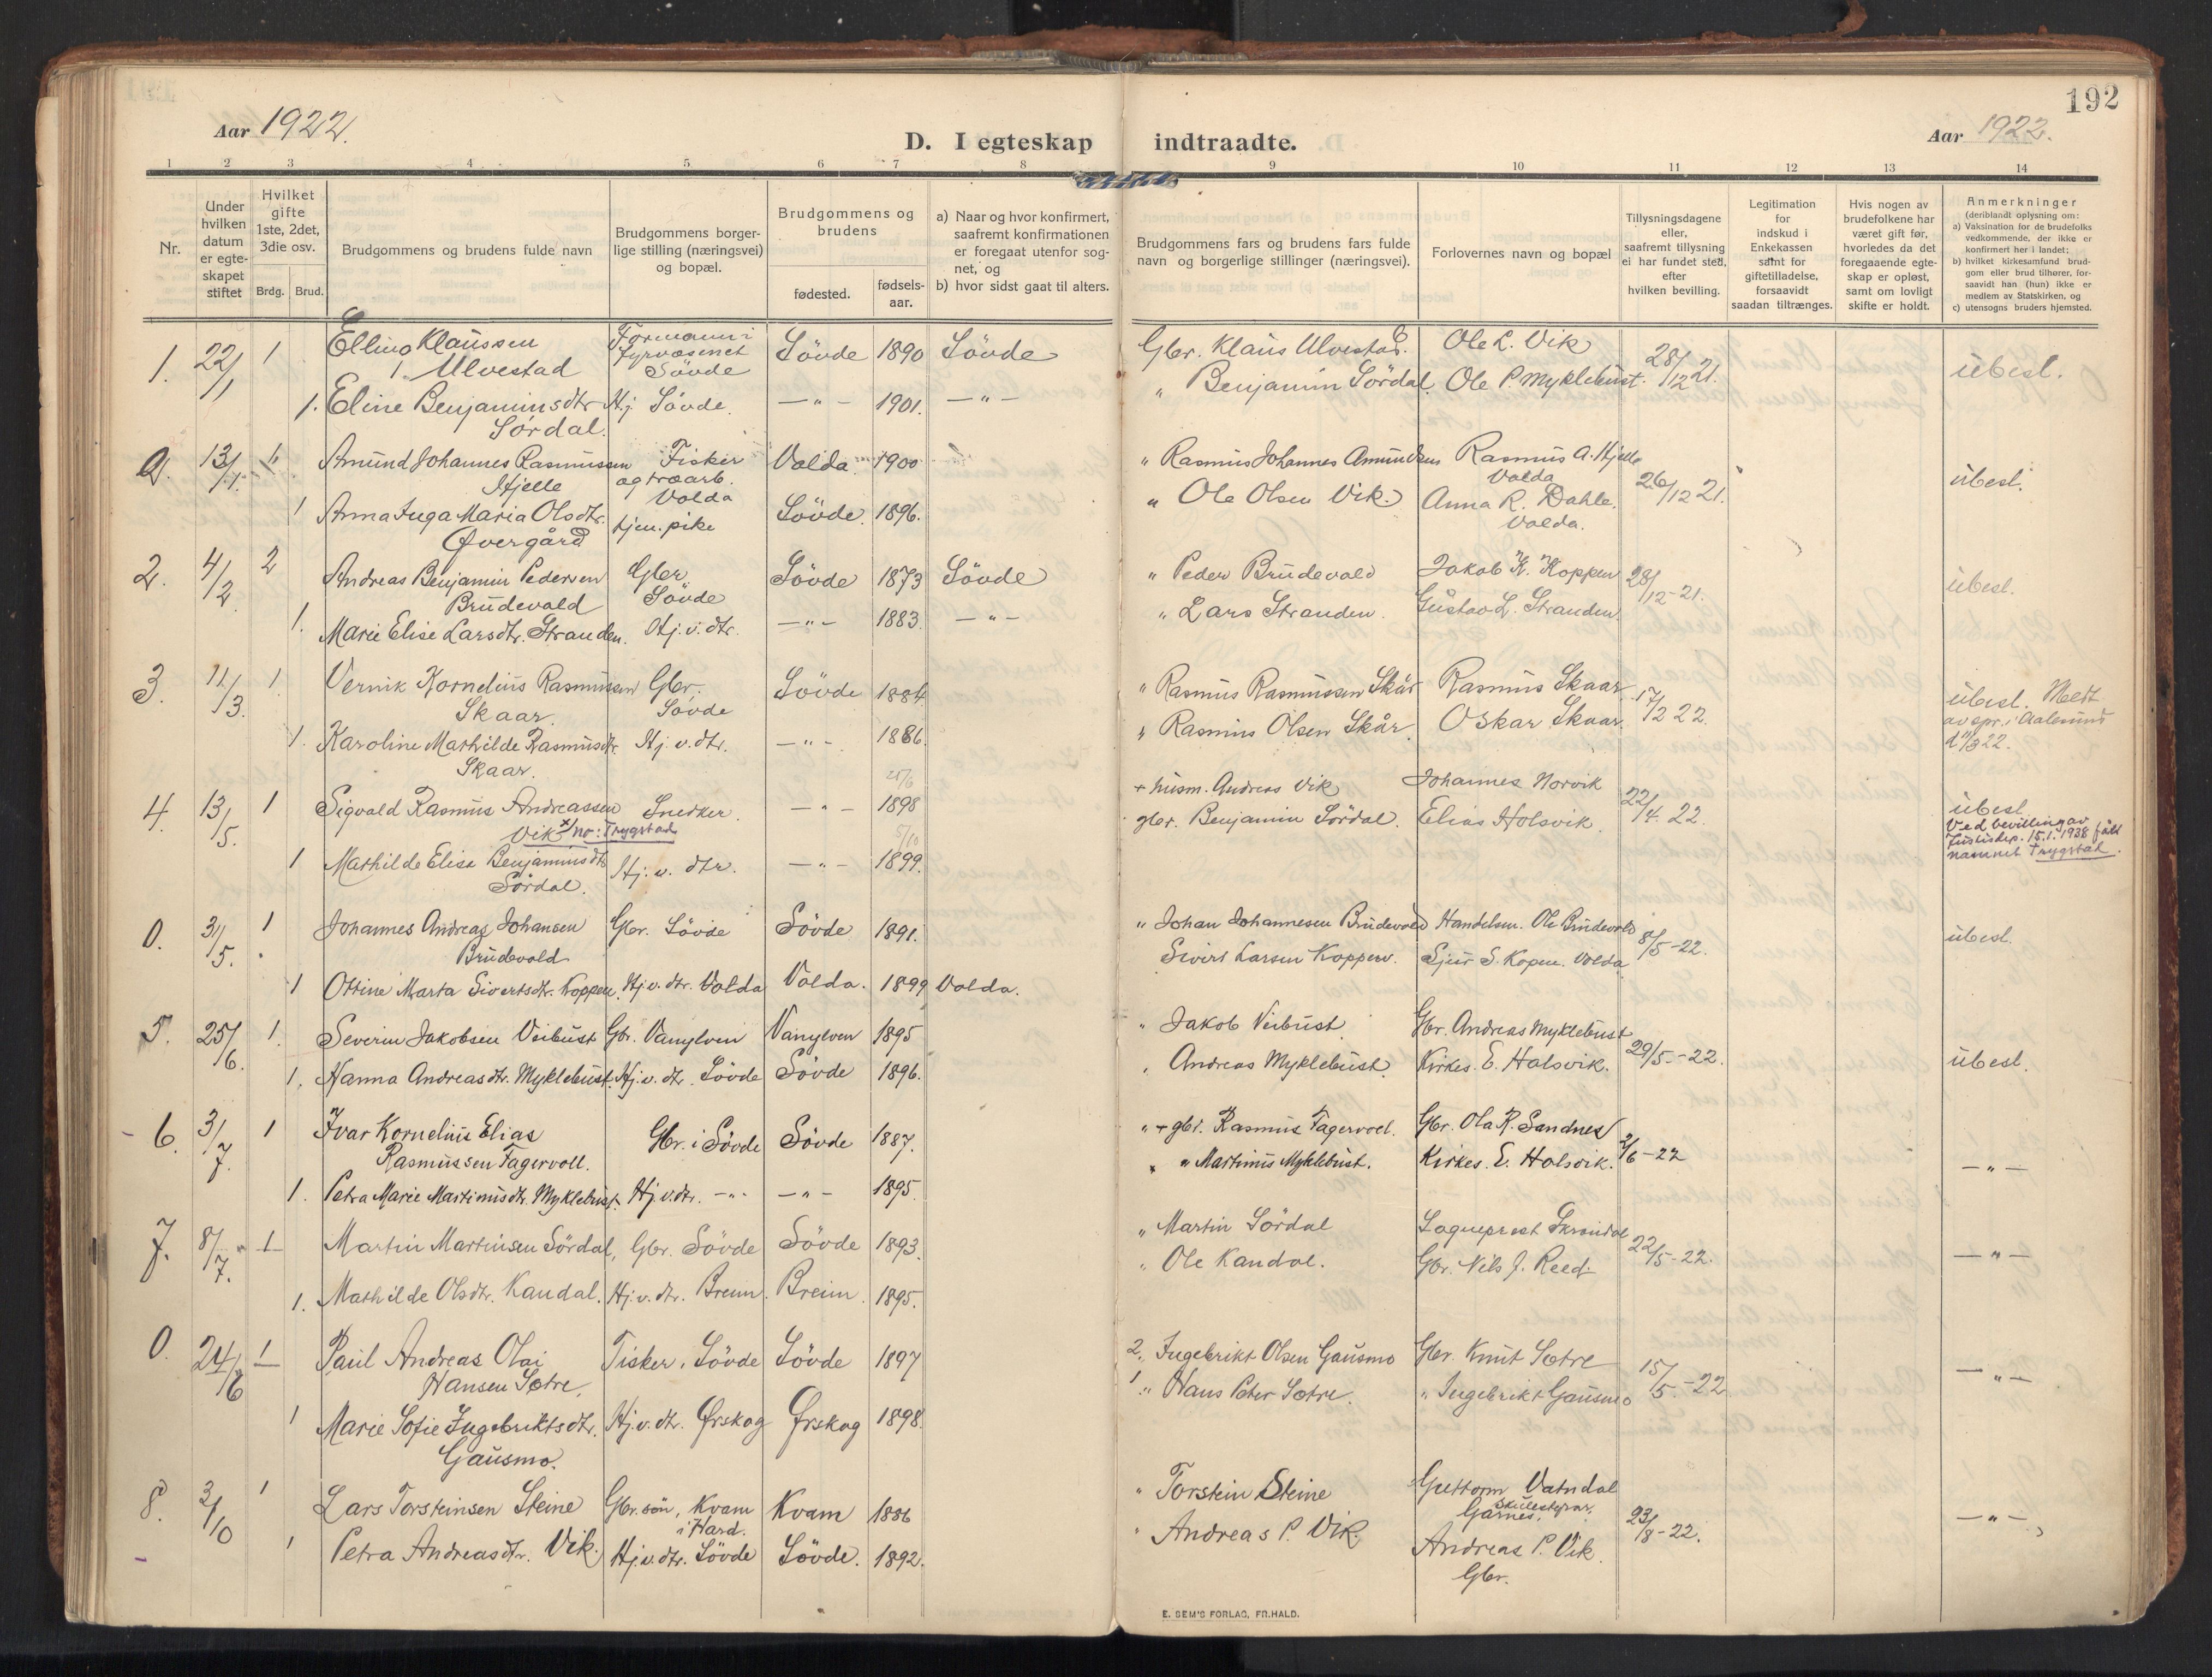 192
Aar 1922.
D. I egteskap indtraadte.
Aar 1922.
1 2 3 4 5 6 7 8 9 10 11 12 13 14
Nr.
Under hvilken datum er egteskapet stiftet
Hvilket gifte 1ste, 2det, 3die osv.
Brdg. Brud.
Brudgommens og brudens fulde navn
Brudgommens borgerlige stilling (næringsvei) og bopæl.
Brudgommens og brudens
fødested.
fødselsaar.
a) Naar og hvor konfirmert, saafremt konfirmationen er foregaat utenfor sognet, og
b) hvor sidst gaat til alters.
Brudgommens fars og brudens fars fulde navn og borgerlige stillinger (næringsvei).
Forlovernes navn og bopæl
Tillysningsdagene eller, saafremt tillysning ei har fundet sted, efter hvilken bevilling.
Legitimation for indskud i Enkekassen samt for giftetilladelse, forsaavidt saadan tiltrænges.
Hvis nogen av brudefolkene har været gift før, hvorledes da det foregaaende egteskap er opløst, samt om lovligt skifte er holdt.
Anmerkninger
(deriblandt oplysning om:
a) Vaksination for de brudefolks vedkommende, der ikke er konfirmert her i landet;
b) hvilket kirkesamfund brudgom eller brud tilhører, forsaavidt han (hun) ikke er medlem av Statskirken, og
c) utensogns bruders hjemsted.
1. 22/1 1 Elling Klaussen Ulvestad Formann i fyrvæsenet Søvde Søvde 1890 Søvde Gbr. Klaus Ulvestad. Ole L. Vik 28/12 21. übesl.
1. Eline Benjaminsdtr. Sørdal. Hj. Søvde. —"— 1901. —"— " Benjamin Sørdal Ole P. Myklebust.
0. 13/1. 1 Amund Johannes Rasmussen Hjelle Fisker og træarb. Volda Volda 1900 " Rasmus Johannes Amundsen Rasmus A. Hjelle Volda 26/12 21. übesl.
1 Anna Inga Maria Olsdtr. Øvergård tjen. pike Søvde. 1896. " Ole Olsen Vik. Anna R. Dahle. Volda.
2. 4/2. 2 Andreas Benjamin Pedersen Brudevold Gbr Søvde Søvde 1873 Søvde " Peder Brudevold Jakob K. Koppen 28/12-21. übesl.
1. Marie Elise Larsdtr. Stranden. Hj. v. dtr. —"— 1883. —"— " Lars Stranden. Gustav L. Stranden.
3. 11/3. 1 Vernik Kornelius Rasmussen Skaar. Gbr. Søvde Søvde 1884 " Rasmus Rasmussen Skår Rasmus Skaar 17/2 22. übesl. Meldt av spr. i Aalesund d 11/3 22.
1. Karoline Mathilde Rasmusdtr. Skaar. Hj. v. dtr. —"— 1886. " Rasmus Olsen Skår. Oskar Skaar.
4. 13/5. 1 Sigvald Rasmus Andreassen Vik x/ no: Trygstad Snedker. —"— 1898 + husm. Andreas Vik Johannes Norvik 22/4. 22. übesl. Ved bevilling av Justisdep. 15.1.1938 fått namnet Trygstad.
1 Mathilde Elise Benjaminsdtr. Sørdal. Hj. v. dtr. —"— 1899. gbr. Benjamin Sørdal. Elias Holsvik.
0. 31/5. 1 Johannes Andreas Johansen Brudevold Gbr. Søvde Søvde 1891. " Johan Johannesen Brudevold Handelsm. Ole Brudevold 8/5-22. übesl.
1 Ottine Marta Sivertsdtr. Koppen. Hj. v. dtr. Volda Volda. 1899 Volda. Sivert Larsen Koppen. Sjur S. Kopen. Volda
5. 25/6. 1. Severin Jakobsen Veibust Gbr. Vanylven Vanylven 1895 " Jakob Veibust. Gbr. Andreas Myklebust 29/5.-22. übesl.
1. Hanna Andreasdtr. Myklebust. Hj. v. dtr. Søvde Søvde 1896. " Andreas Myklebust. Kirkes. E. Holsvik.
6. 3/7. 1 Ivar Kornelius Elias Rasmussen Fagervoll. Gbr. i Søvde Søvde 1887. " + gbr. Rasmus Fagervoll. Gbr. Ola R. Sandnes 2/6-22 —"—
1. Petra Marie Martinusdtr. Myklebust. Hj. v. dtr. —"— —"— 1895. " " Martinus Myklebust. Kirkes. E. Holsvik.
7. 8/7. 1 Martin Martinsen Sørdal, Gbr. Søvde Søvde 1893. " Martin Sørdal Sogneprest Skrondal 22/5-22. —"—
1. Mathilde Olsdtr. Kandal. Hj. v. dtr. Breim. Breim. 1895. " Ole Kandal. Gbr. Nils J. Reed.
0. 24/6 1 Paul Andreas Olai Hansen Sætre, Fisker, Søvde Søvde 1897 2. " Ingebrikt Olsen Gausmo Gbr. Knut Sætre 15/5.-22 —"—
1 Marie Sofie Ingebriktsdtr. Gausmo. Hj. v. dtr. Ørskog Ørskog 1898. 1. " Hans Peter Sætre. " Ingebrikt Gausmo
8. 3/10 1 Lars Torsteinsen Steine Gbr. søn, Kvam i Hard. Kvam 1886 " Torstein Steine Guttorm Vatndal Skulestyrar, Garnes. 23/8-22. —"—
1 Petra Andreasdtr. Vik. Hj. v. dtr. Søvde Søvde. 1892. " Andreas P. Vik. Andreas P. Vik. Gbr.
E. SEM'S FORLAG, FR.HALD.